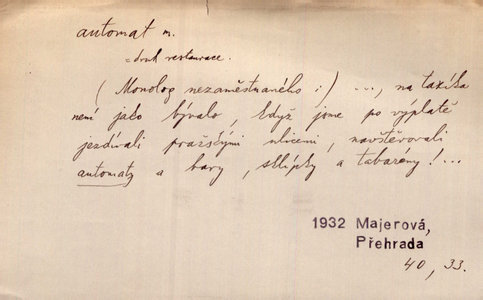 automat m.
= druh restaurace.
(Monolog nezaměstnaného:) ..., na taxíka
není jako bývalo, když jsme po výplatě
jezdívali pražskými ulicemi, navštěvovali
automaty a bary, sklípky a tabarény!...
1932 Majerová,
Přehrada
40, 33.